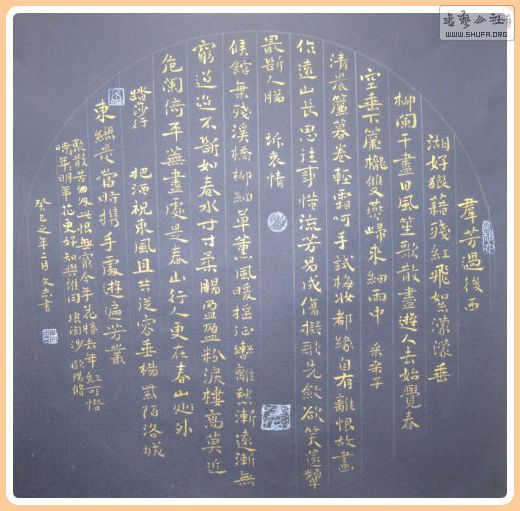 群芳過後西
湖好狼籍殘紅飛絮濛濛垂
柳闌干盡日風笙歌散盡遊人去始覺春
空垂下簾櫳雙燕歸來細雨中 采桑子
清晨簾幕卷輕霜呵手試梅妝都緣自有離恨故畫
作遠山長思往事惜流芳易成傷擬歌先斂欲笑還顰
最斷人腸 訴衷情
候館殘溪橋柳細草薰風暖搖征轡離愁漸遠漸無
窮迢迢不斷如春水寸寸柔腸盈盈粉淚樓高莫近
危闌倚平蕪盡處是春山行人更在春山外
踏莎行 把酒祝東風且共從容垂楊紫陌洛城
東總是當時携手處遊遍芳叢
聚散苦匆匆此恨無窮今年花勝去年紅可惜
時年明年花更好知與誰同 浪淘沙 歐陽修
癸巳之年二月文志書
書藝公社
WWW.SHUFA.ORG